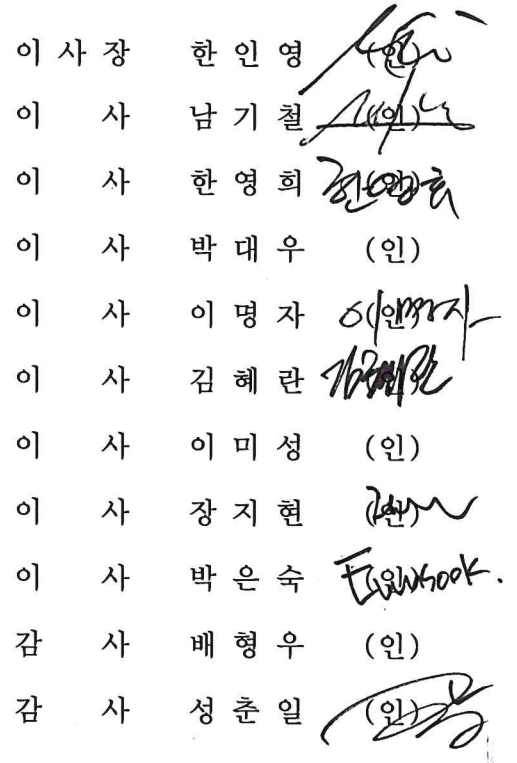 이 사 장 한 인 영 (인)
이 사 남 기 철 (인)
이 사 한 영 희 (인)
이 사 박 대 우 (인)
이 사 이 명 자 (인)
이 사 김 혜 란
이 사 이 미 성 (인)
이 사 장 지 현 (인)
이 사 박 은 숙 Eunsook.
감 사 배 형 우 (인)
감 사 성 춘 일 (인)